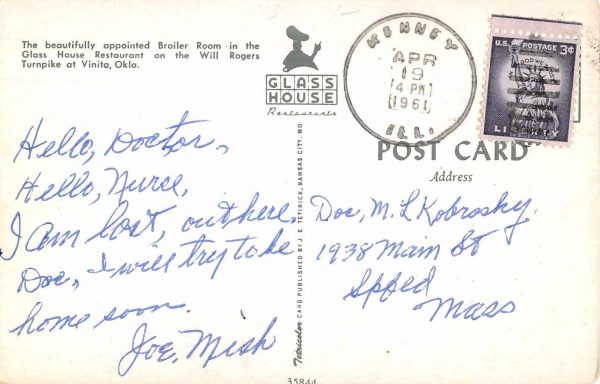 The beautifully appointed Broiler Room in the
Glass House Restaurant on the Will Rogers
Turnpike at Vinita, Okla.
GLASS
HOUSE
Restaurants
KENNEY
APR
19
4 PM
1961
ILL.
U.S. POSTAGE 3¢
IN GOD WE TRUST
LIBERTY
POST CARD
Address
Hello, Doctor,
Hello, Nurce,
I am lost, out here,
Doc, I will try to be
home soon.
Joe, Mish
Doc, M. L Kobrosky.
1938 Main St
Spfed
Mass
Tetricolor CARD PUBLISHED BY J. E. TETIRICK, KANSAS CITY, MO.
35844